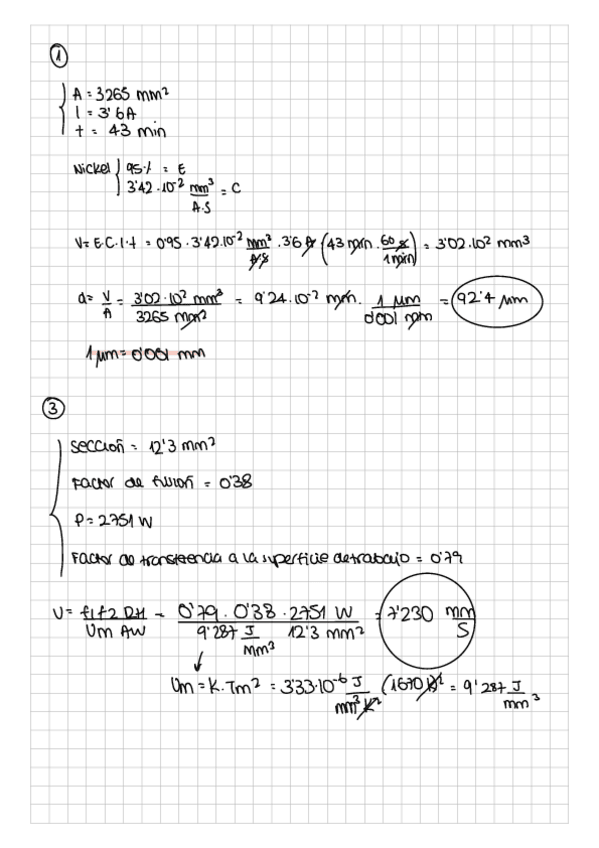 ①
A = 3265 mm²
I = 3'6A
t = 43 min
Nickel 95% = E
3'42·10⁻² mm³/A·S = C
V = E·C·I·t = 0'95 · 3'42·10⁻² mm³/A·s · 3'6 A (43 min · 60 s/1 min) = 3'02·10² mm³
d = V/A = 3'02·10² mm³/3265 mm² = 9'24·10⁻² mm · 1 μm/0'001 mm = 92'4 μm
1 μm = 0'001 mm
③
sección = 12'3 mm²
Factor de fusión = 0'38
P = 2751 W
Factor de transferencia a la superficie de trabajo = 0'79
V = f1 f2 RH/Um AW = 0'79 · 0'38 · 2751 W/9'287 J/mm³ 12'3 mm² = 7'230 mm/S
Um = K · Tm² = 3'33·10⁻⁶ J/mm³ K² (1670 K)² = 9'287 J/mm³